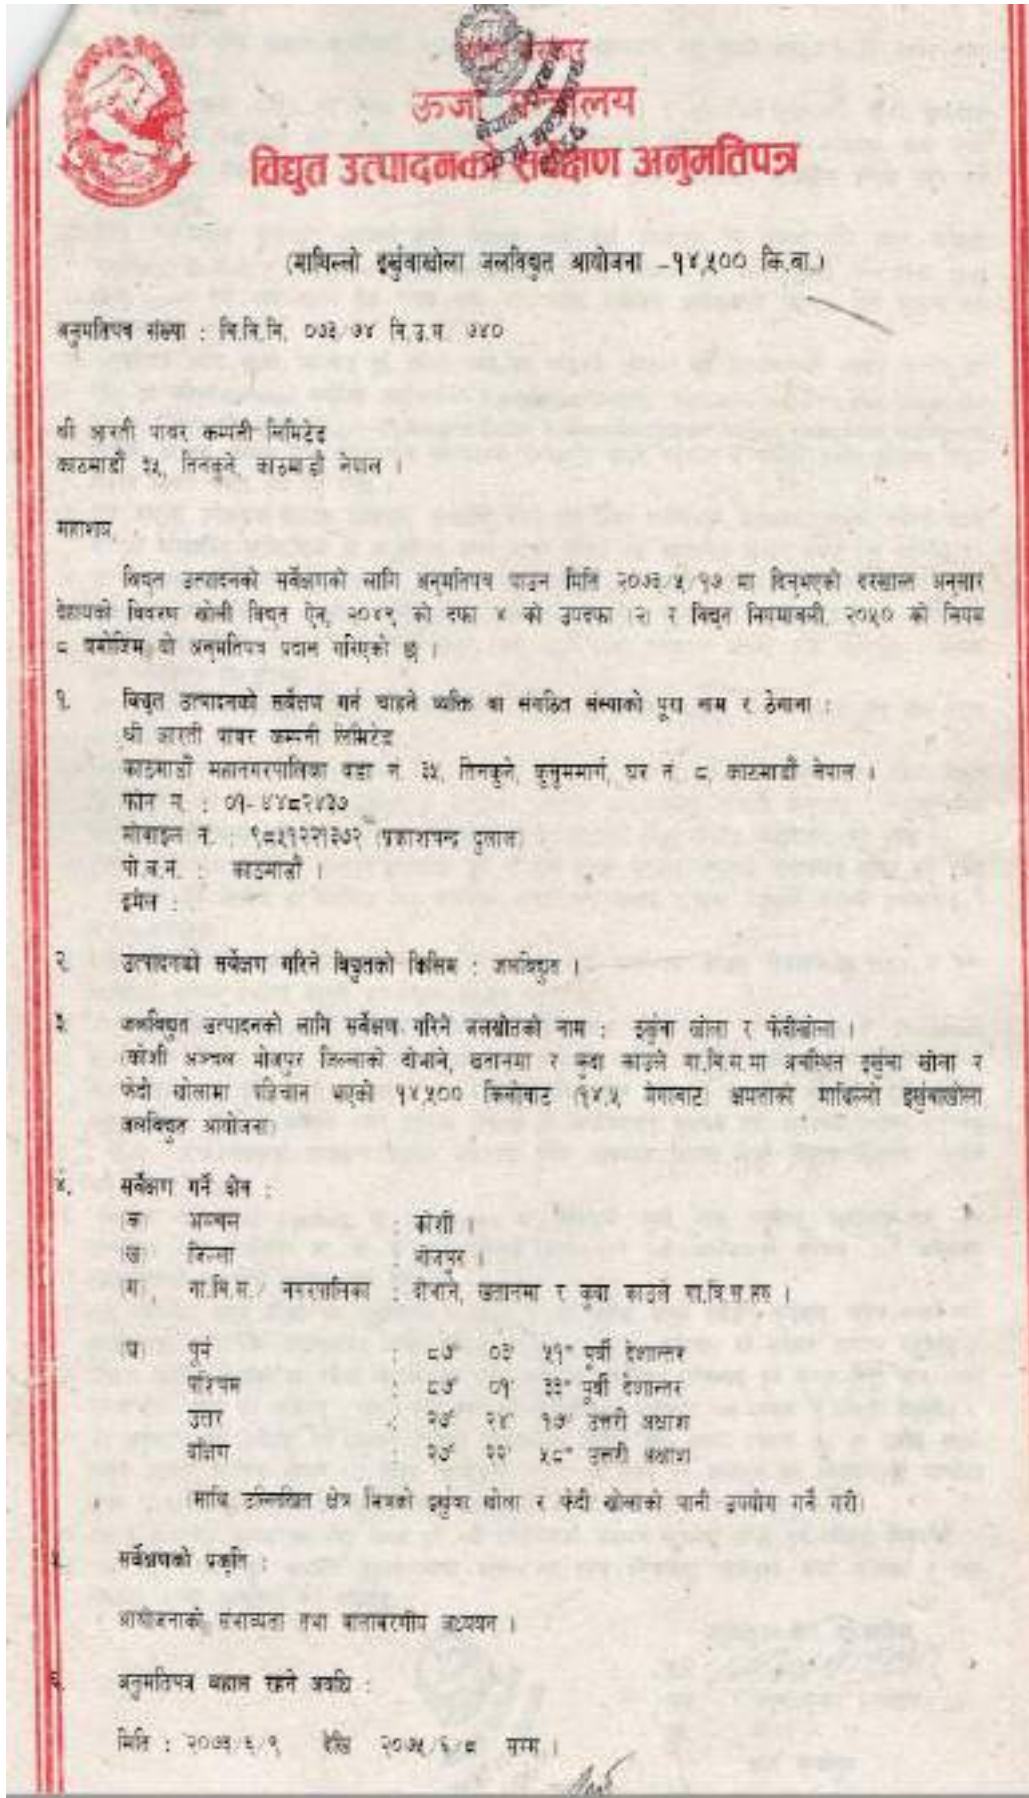 ऊर्जा मन्त्रालय
विद्युत उत्पादनको सर्वेक्षण अनुमतिपत्र
(माथिल्लो इखुंवाखोला जलविद्युत आयोजना -१४,५०० कि.वा.)
अनुमतिपत्र संख्या : वि.वि.वि. ०७३/७४ वि.उ.स. ७४०
श्री आरती पावर कम्पनी लिमिटेड
काठमाडौं ३५, तिनकुने, काठमाडौं नेपाल ।
महाशय,
विद्युत उत्पादनको सर्वेक्षणको लागि अनुमतिपत्र पाउन मिति २०७३/५/१७ मा दिनुभएको दरखास्त अनुसार
देहायको विवरण खोली विद्युत ऐन, २०४९ को दफा ४ को उपदफा (२) र विद्युत नियमावली, २०५० को नियम
८ बमोजिम यो अनुमतिपत्र प्रदान गरिएको छ ।
१. विद्युत उत्पादनको सर्वेक्षण गर्न चाहने व्यक्ति वा संगठित संस्थाको पूरा नाम र ठेगाना :
श्री आरती पावर कम्पनी लिमिटेड
काठमाडौं महानगरपालिका वडा नं. ३५, तिनकुने, कुसुममार्ग, घर नं. ८, काठमाडौं नेपाल ।
फोन नं. : ०१-४४८२४३७
मोबाइल नं. : ९८५१२२१३७२ (प्रकाशचन्द्र दुलाल)
पो.ब.नं. : काठमाडौं ।
इमेल :
२. उत्पादनको सर्वेक्षण गरिने विद्युतको किसिम : जलविद्युत ।
३. जलविद्युत उत्पादनको लागि सर्वेक्षण गरिने जलस्रोतको नाम : इखुंवा खोला र फेदीखोला ।
(कोशी अञ्चल भोजपुर जिल्लाको दोभाने, खतानमा र कुदा काउले गा.वि.स.मा अवस्थित इखुंवा खोला र
फेदी खोलामा पहिचान भएको १४,५०० किलोवाट (१४.५ मेगावाट) क्षमताको माथिल्लो इखुंवाखोला
जलविद्युत आयोजना)
४. सर्वेक्षण गर्ने क्षेत्र :
(क) अञ्चल : कोशी ।
(ख) जिल्ला : भोजपुर ।
(ग) गा.वि.स./ नगरपालिका : दोभाने, खतानमा र कुवा काउले गा.वि.स.हरु ।
(घ) पूर्व : ८७° ०३' ५१" पूर्वी देशान्तर
पश्चिम : ८७° ०१' ३३" पूर्वी देशान्तर
उत्तर : २७° २४' १७" उत्तरी अक्षांश
दक्षिण : २७° २२' ५८" उत्तरी अक्षांश
(माथि उल्लिखित क्षेत्र भित्रको इखुंवा खोला र फेदी खोलाको पानी उपयोग गर्ने गरी)
५. सर्वेक्षणको प्रकृति :
आयोजनाको संभाव्यता तथा वातावरणीय अध्ययन ।
६. अनुमतिपत्र बहाल रहने अवधि :
मिति : २०७३/६/९ देखि २०७५/६/८ सम्म ।